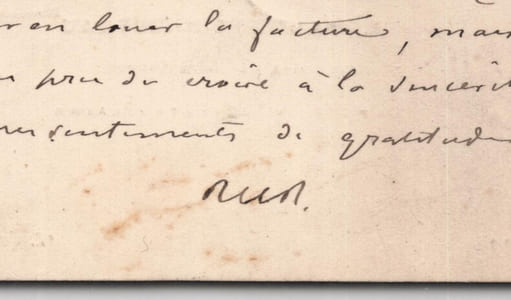 en louer la facture, mais
prie de croire à la sincérit
sentiments de gratitude